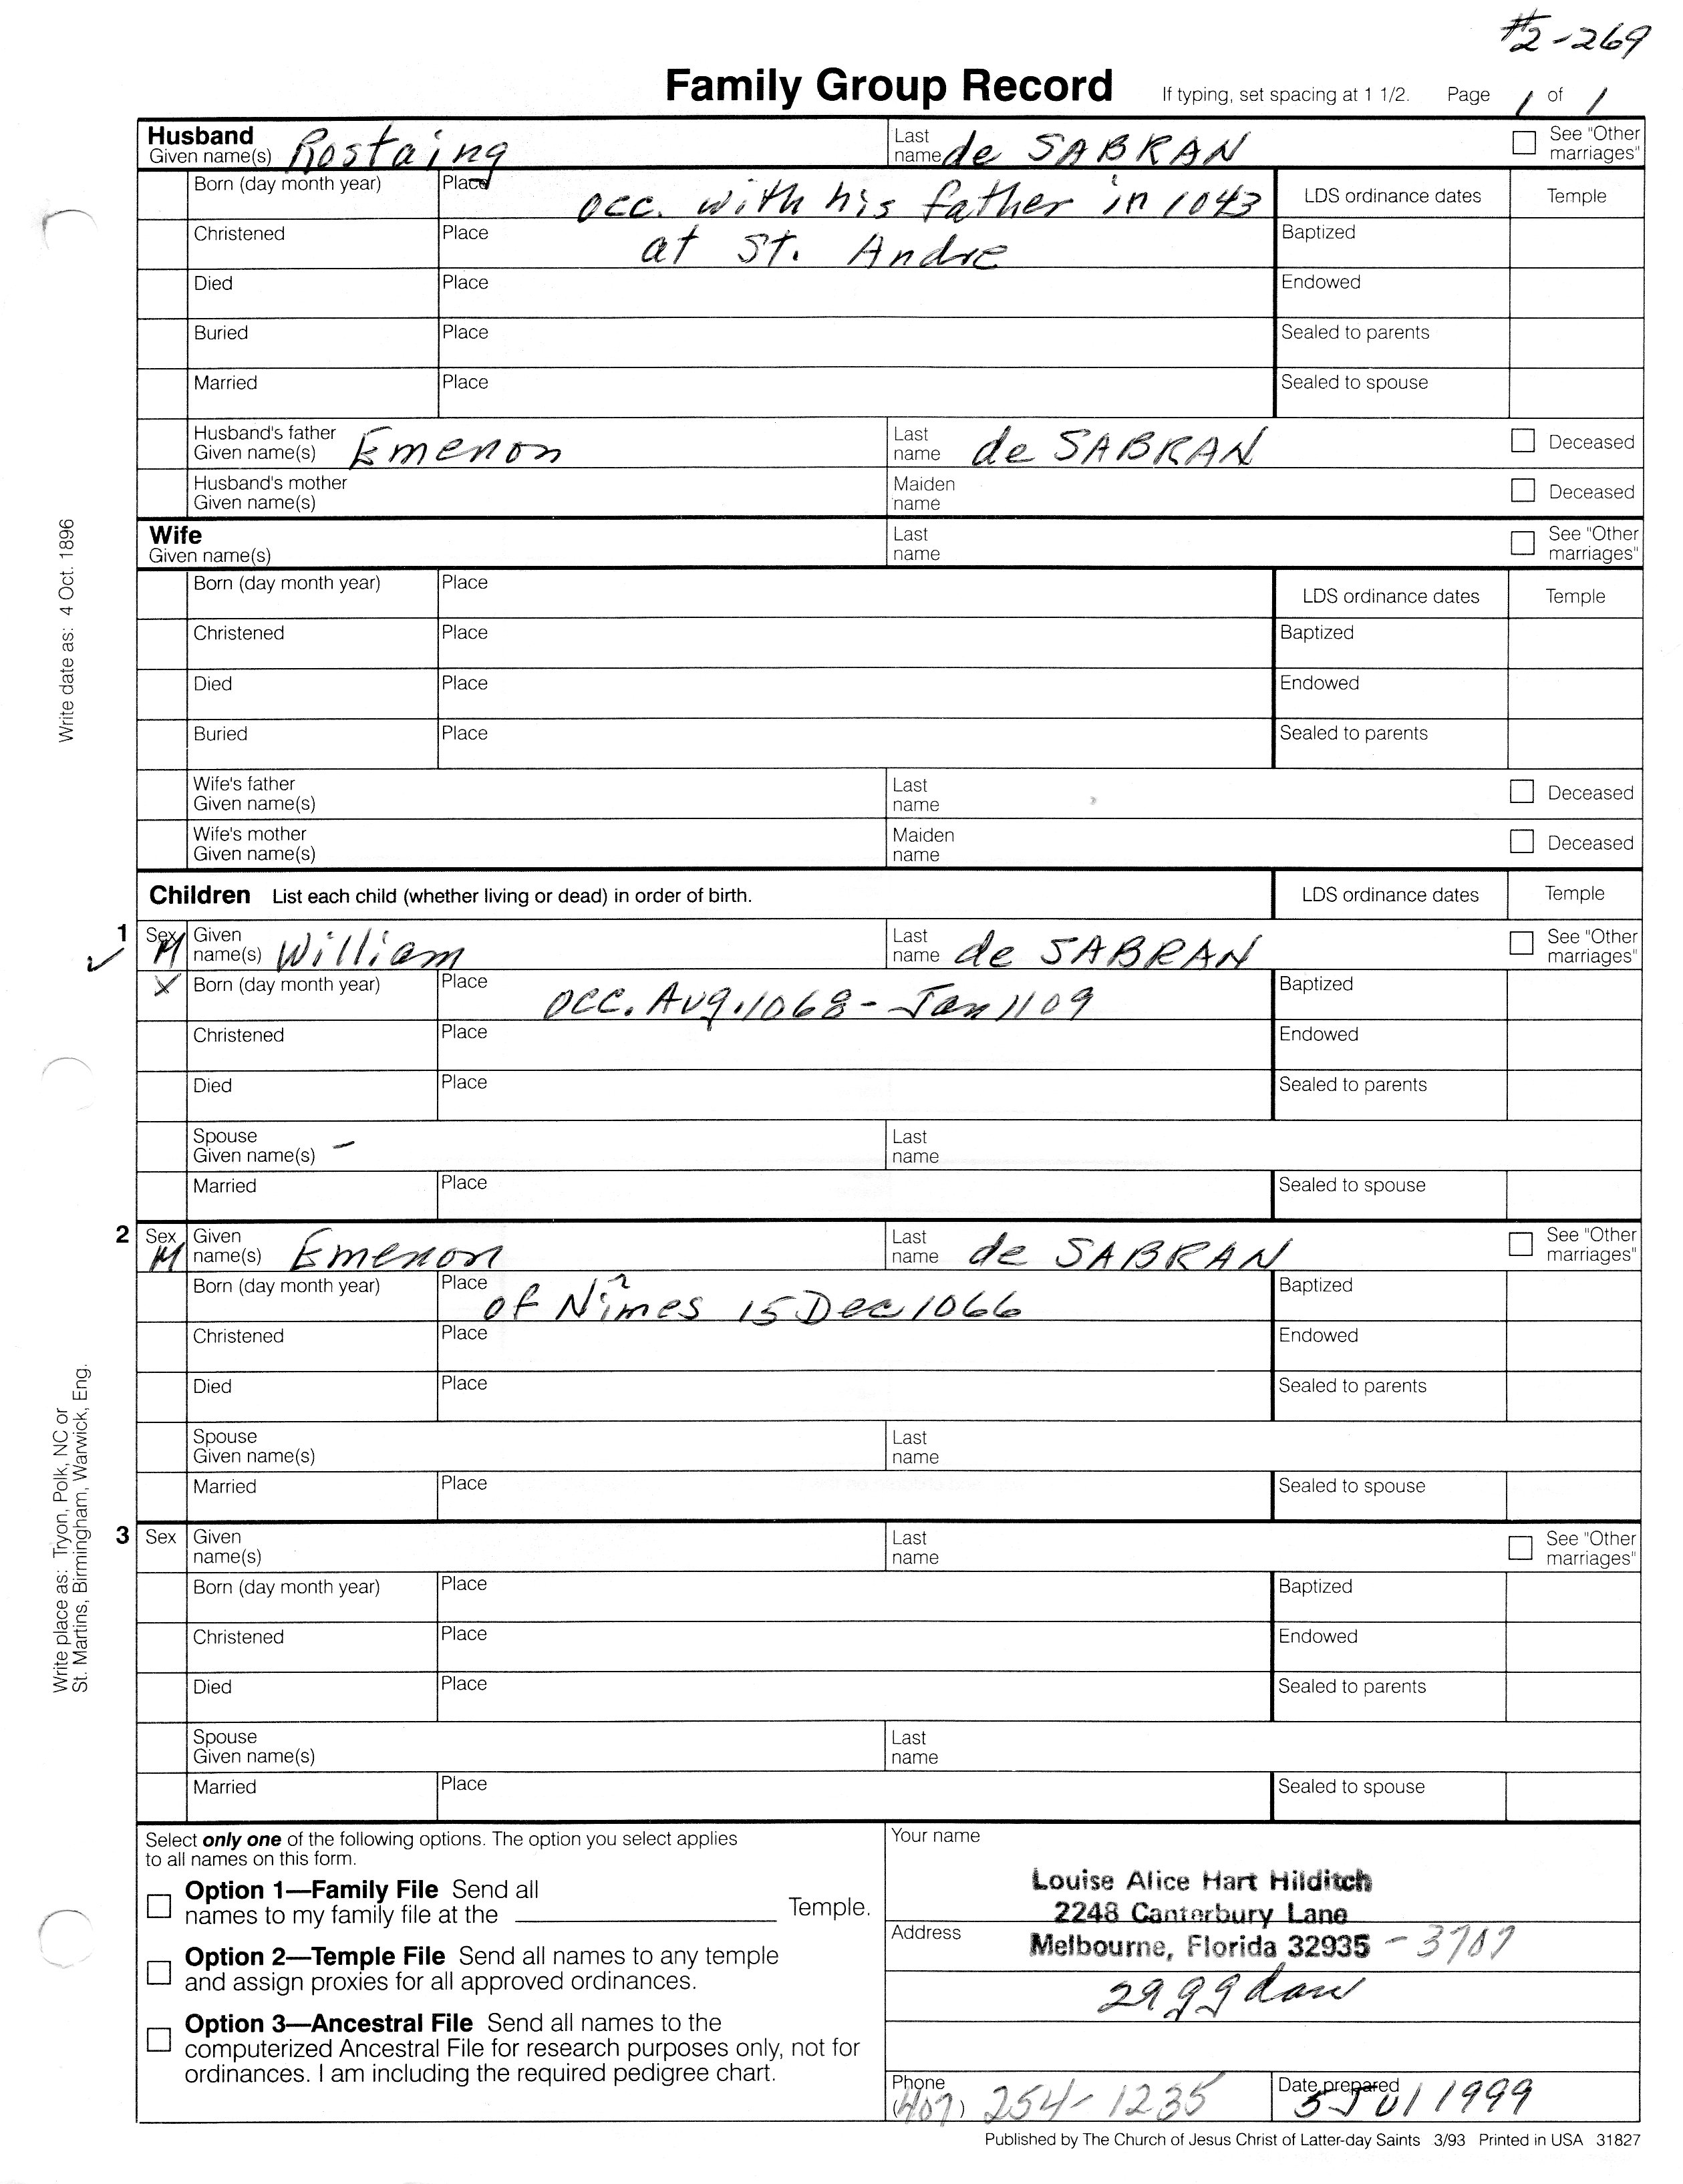 #2-269
Family Group Record If typing, set spacing at 1 1/2. Page 1 of 1
Husband Given name(s) Rostaing Last name de SABRAN See "Other marriages"
Born (day month year) Place occ. with his father in 1043 LDS ordinance dates Temple
Christened Place at St. Andre Baptized
Died Place Endowed
Buried Place Sealed to parents
Married Place Sealed to spouse
Husband's father Given name(s) Emenon Last name de SABRAN Deceased
Husband's mother Given name(s) Maiden name Deceased
Wife Given name(s) Last name See "Other marriages"
Born (day month year) Place LDS ordinance dates Temple
Christened Place Baptized
Died Place Endowed
Buried Place Sealed to parents
Wife's father Given name(s) Last name Deceased
Wife's mother Given name(s) Maiden name Deceased
Children List each child (whether living or dead) in order of birth. LDS ordinance dates Temple
1 Sex M Given name(s) William Last name de SABRAN See "Other marriages"
X Born (day month year) Place occ. Aug. 1068 - Jan 1109 Baptized
Christened Place Endowed
Died Place Sealed to parents
Spouse Given name(s) - Last name
Married Place Sealed to spouse
2 Sex M Given name(s) Emenon Last name de SABRAN See "Other marriages"
Born (day month year) Place of Nîmes 15 Dec 1066 Baptized
Christened Place Endowed
Died Place Sealed to parents
Spouse Given name(s) Last name
Married Place Sealed to spouse
3 Sex Given name(s) Last name See "Other marriages"
Born (day month year) Place Baptized
Christened Place Endowed
Died Place Sealed to parents
Spouse Given name(s) Last name
Married Place Sealed to spouse
Write date as: 4 Oct. 1896
Write place as: Tryon, Polk, NC or
St. Martins, Birmingham, Warwick, Eng.
Select only one of the following options. The option you select applies
to all names on this form.
Option 1—Family File Send all
names to my family file at the Temple.
Option 2—Temple File Send all names to any temple
and assign proxies for all approved ordinances.
Option 3—Ancestral File Send all names to the
computerized Ancestral File for research purposes only, not for
ordinances. I am including the required pedigree chart.
Your name
Louise Alice Hart Hilditch
2248 Canterbury Lane
Address Melbourne, Florida 32935 - 3707
Phone (407) 254-1235 Date prepared 5 Jul 1999
Published by The Church of Jesus Christ of Latter-day Saints 3/93 Printed in USA 31827